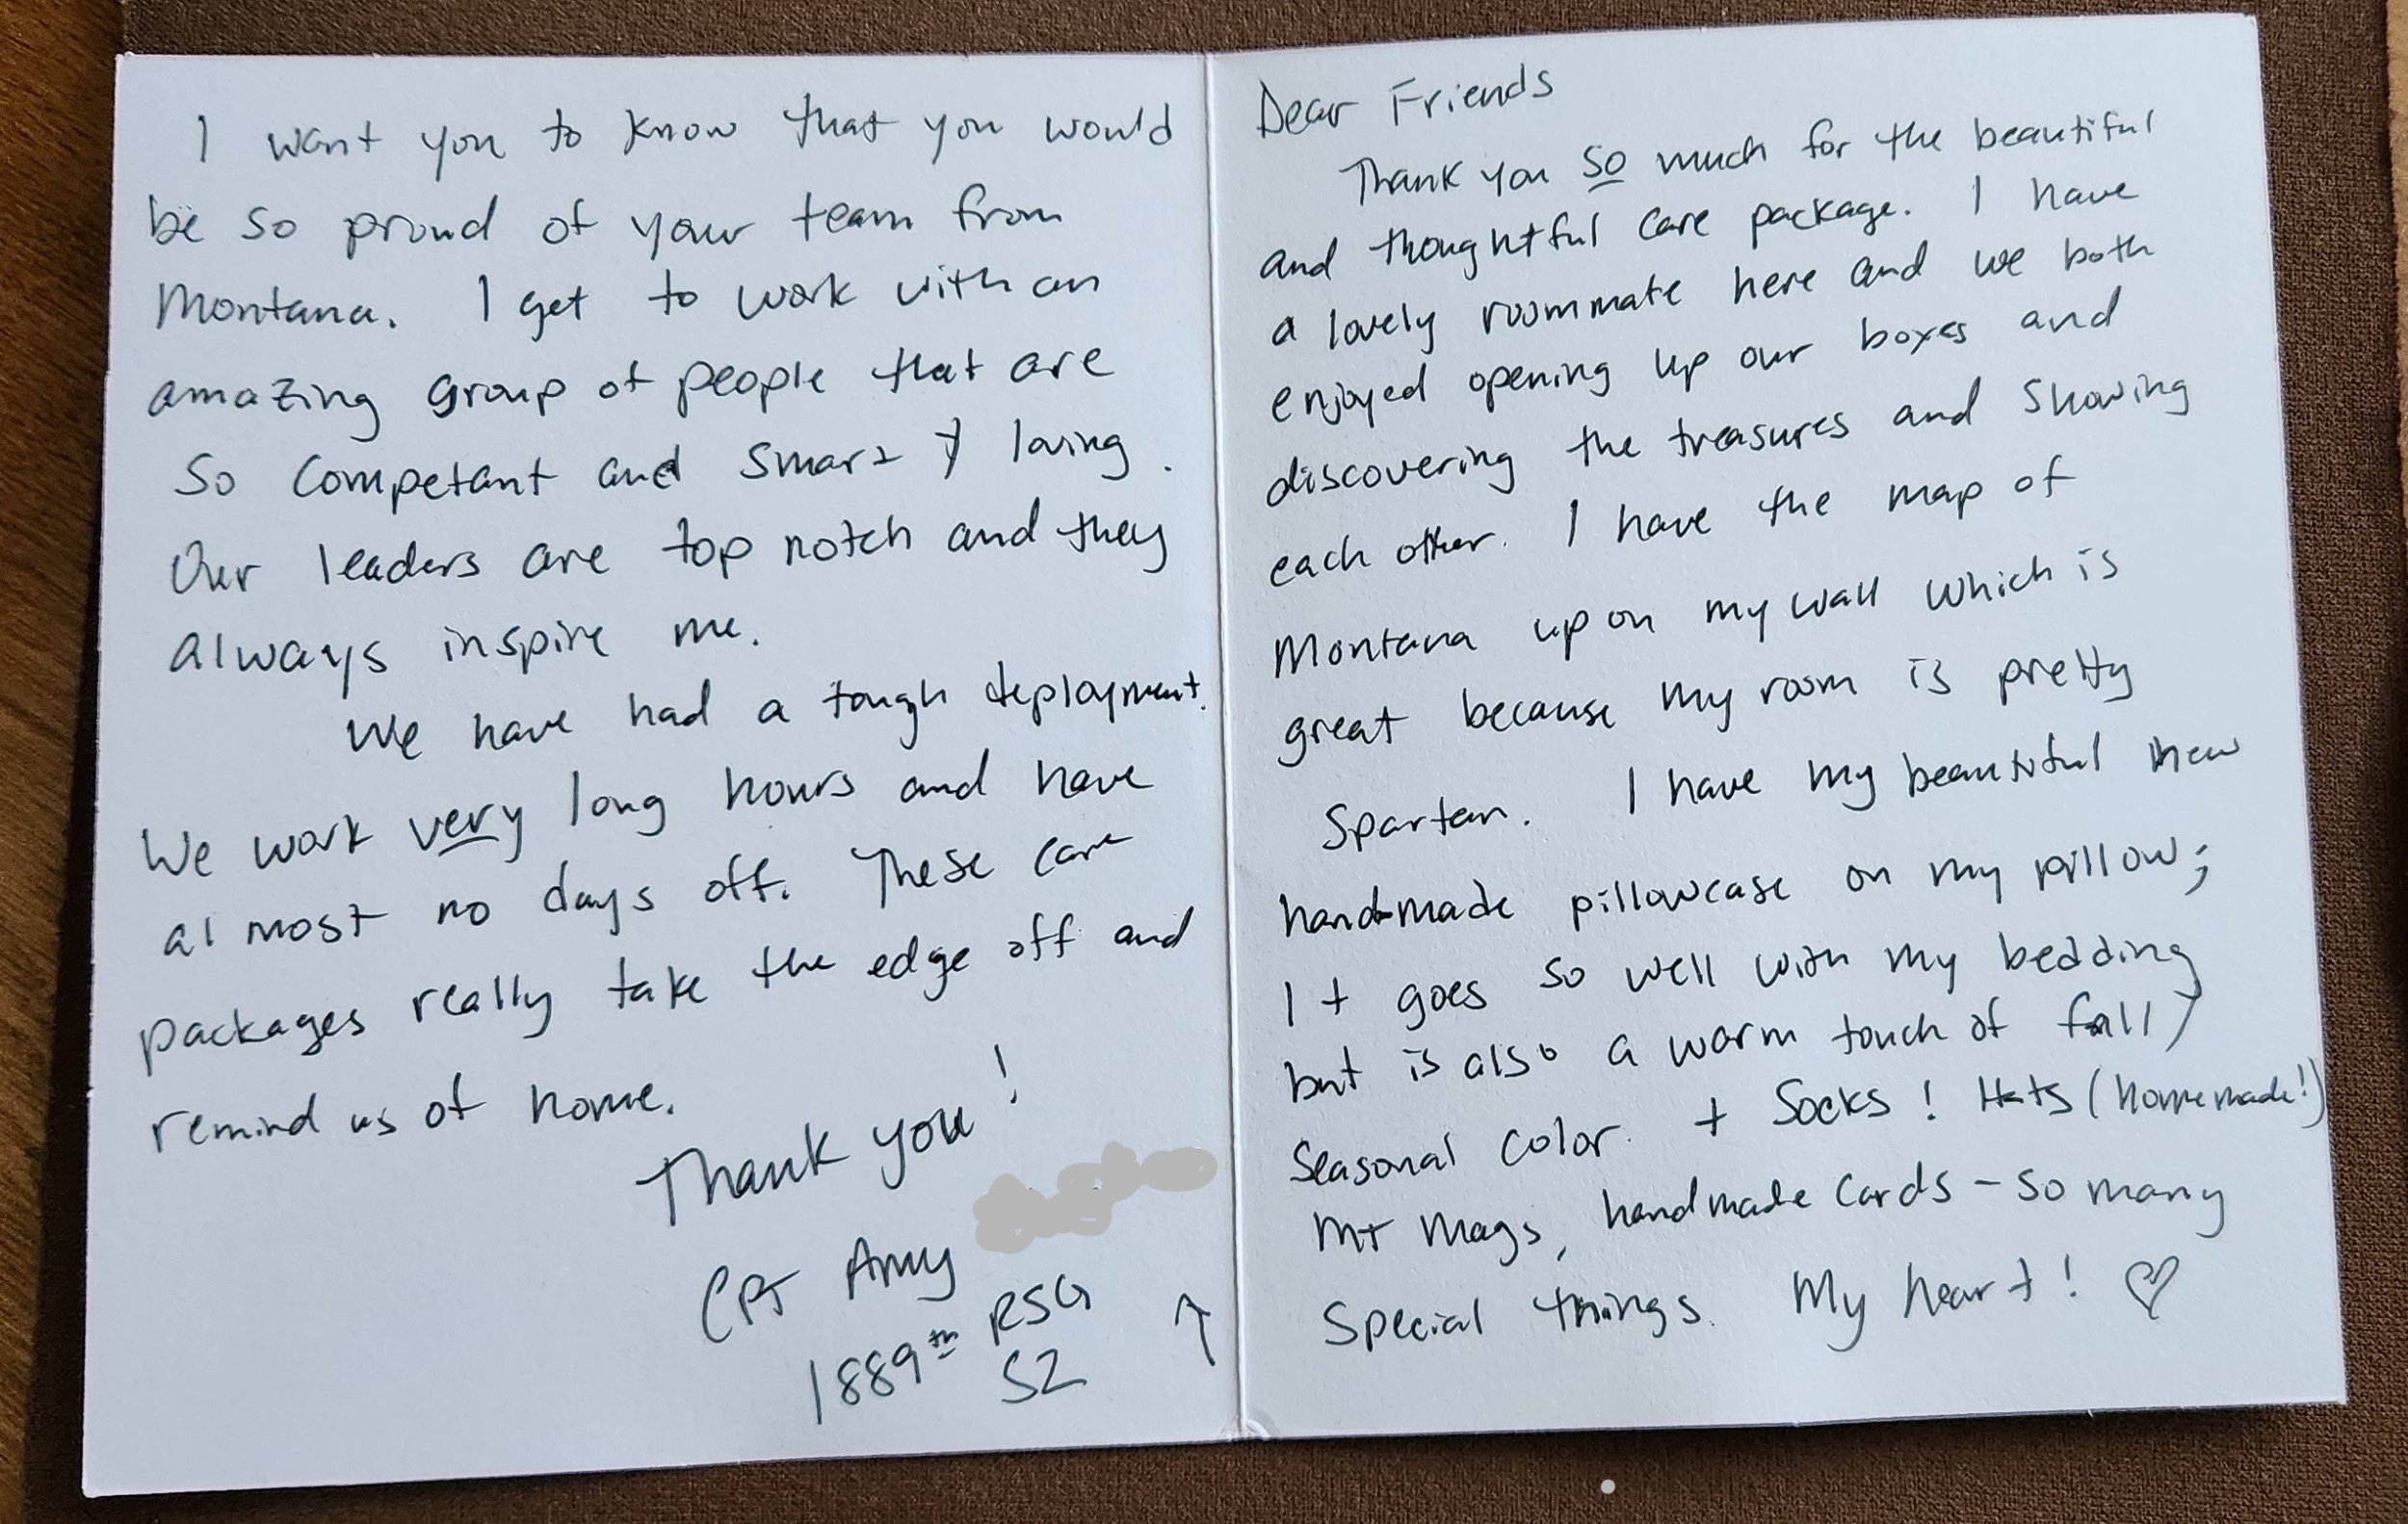 Dear Friends
Thank you so much for the beautiful
and thoughtful care package. I have
a lovely roommate here and we both
enjoyed opening up our boxes and
discovering the treasures and showing
each other. I have the map of
Montana up on my wall which is
great because my room is pretty
Spartan. I have my beautiful new
handmade pillowcase on my pillow;
It goes so well with my bedding
but is also a warm touch of fall
seasonal color. + Socks! Hats (homemade!)
MT Mags, handmade cards - so many
special things. My heart! ♡
I want you to know that you would
be so proud of your team from
Montana. I get to work with an
amazing group of people that are
so competant and smart + loving.
Our leaders are top notch and they
always inspire me.
We have had a tough deployment.
We work very long hours and have
almost no days off. These care
packages really take the edge off and
remind us of home.
Thank you!
CPT Amy
1889th RSG
S2 ↑